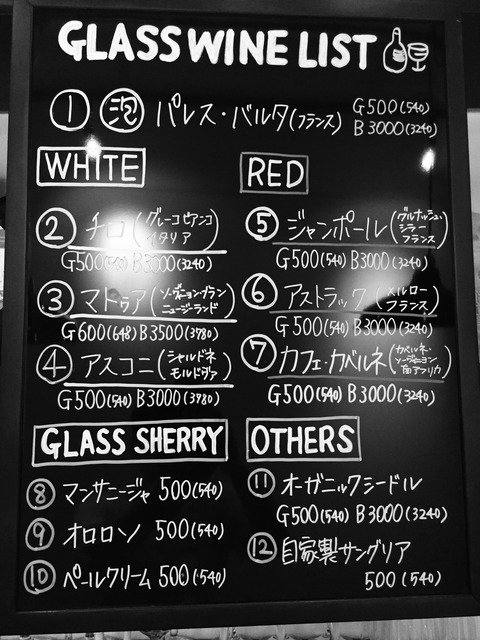 GLASS WINE LIST
① 泡 パレス・バルタ(フランス) G500(540)
B3000(3240)
WHITE
② チロ(グレーコビアンコ
イタリア)
G500(540) B3500(3240)
③ マトゥア(ソーヴィニョンブラン
ニュージーランド)
G600(648) B3500(3780)
④ アスコニ(シャルドネ
モルドヴァ)
G500(540) B3000(3780)
RED
⑤ ジャンポール(グルナッシュ・
シラー
フランス)
G500(540) B3000(3240)
⑥ アストラック(メルロー
フランス)
G500(540) B3000(3240)
⑦ カフェ・カベルネ(カベルネ・
ソーヴィニヨン
南アフリカ)
G500(540) B3000(3240)
GLASS SHERRY
⑧ マンサニージャ 500(540)
⑨ オロロソ 500(540)
⑩ ペールクリーム 500(540)
OTHERS
⑪ オーガニックシードル
G500(540) B3000(3240)
⑫ 自家製サングリア
500(540)